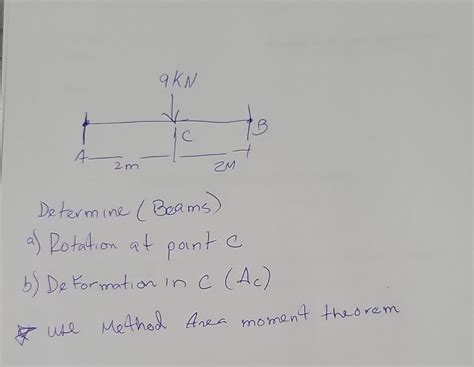 9KN
C
B
A
2m
2M
Determine (Beams)
a) Rotation at point C
b) Deformation in C (Ac)
* use Method Area moment theorem